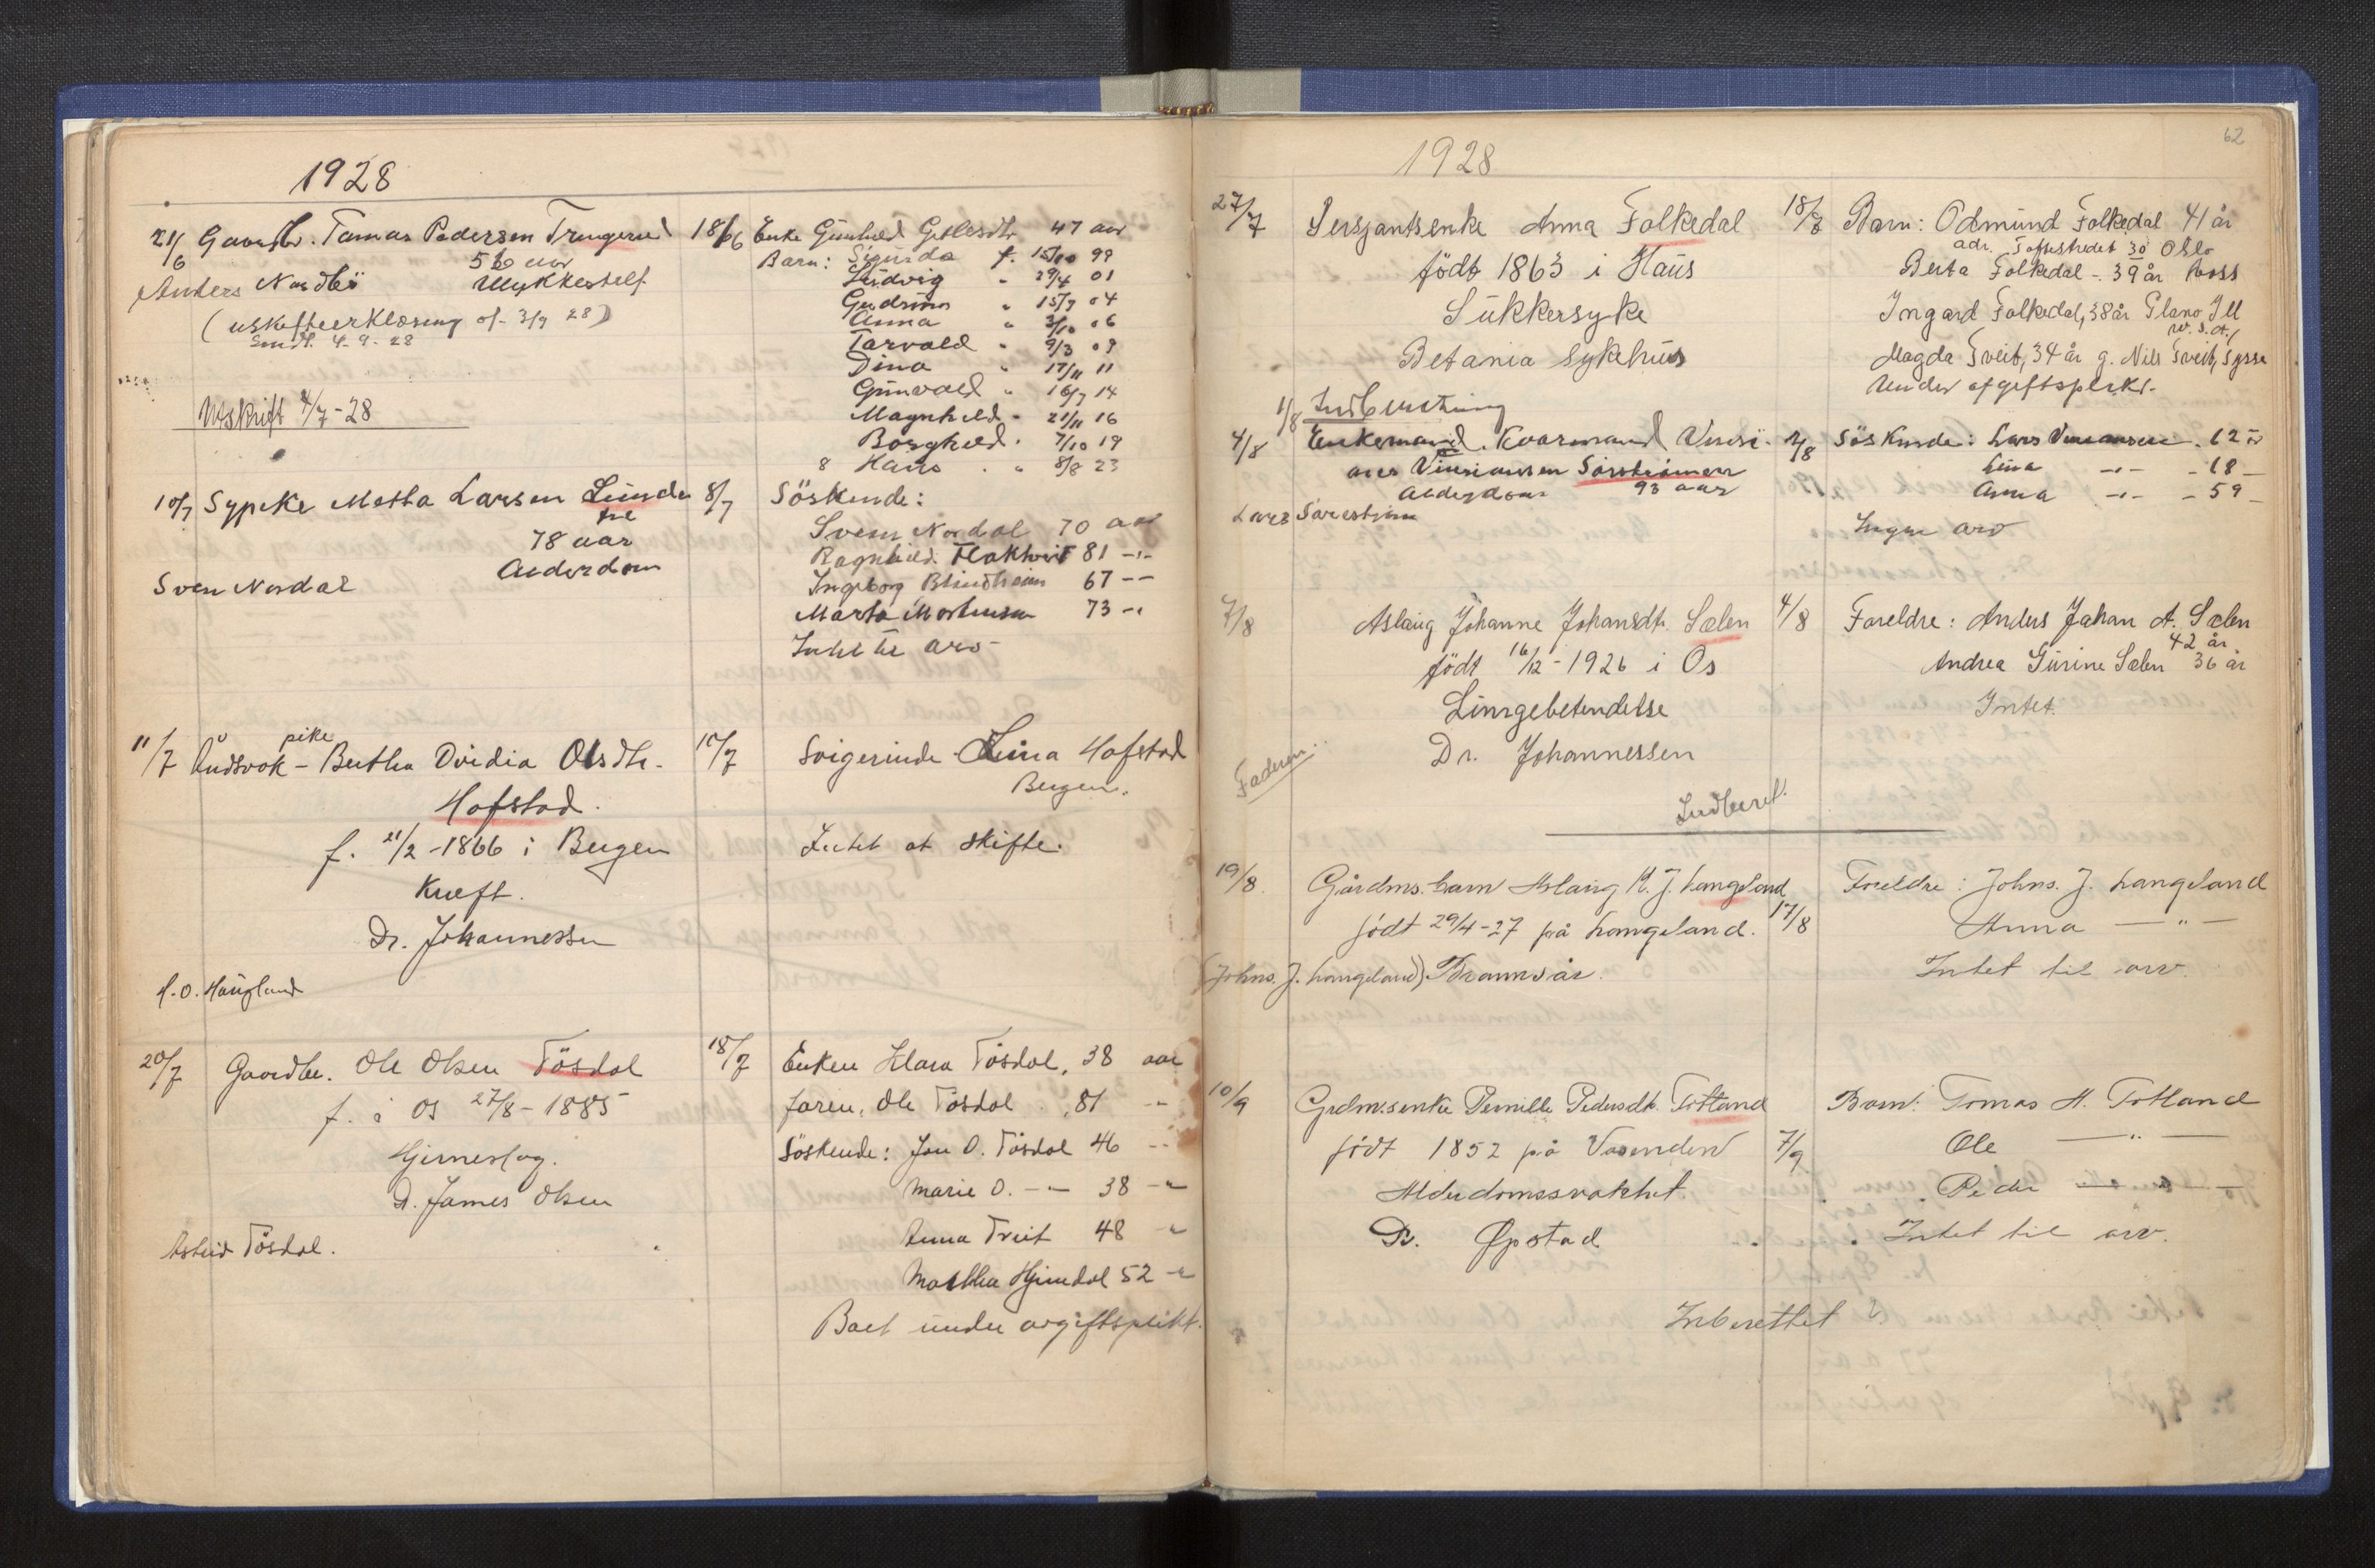 1928
21/6 Gaardbr. Tomas Pedersen Trengereid 18/6 Enke Gunhild Getlesdtr 47 aar
56 aar Barn: Sigurda f. 15/10 99
Anders Nordbö Ulykkestilf. Ludvig " 29/4 01
Gudrun " 15/7 04
(uskifteerklæring of. 3/9 28) Anna " 3/10 06
Sendt. 4-9-28 Torvald " 9/3 09
Dina " 17/11 11
Gunvald " 16/7 14
Utskrift 4/7-28 Magnhild " 21/11 16
Borghild " 7/10 19
8 Hans " 8/8 23
10/7 Sypike Metta Larsen Lunde 8/7 Söskende:
tre
78 aar Sven Nordal 70 aar
Alderdom Ragnhild Flaktveit 81 -"-
Sven Nordal Ingeborg Blindheim 67 --
Marta Mortensen 73 -"
Intet til arv
11/7 Budsvok-pike Bertha Ovidia Olsdtr. 10/7 Svigerinde Lina Hofstad
Hofstad. Bergen.
f. 21/2-1866 i Bergen Intet at skifte.
Kræft.
Dr. Johannessen
H.O. Haugland
20/7 Gaardbr. Ole Olsen Tösdal 18/7 Enken Klara Tösdal, 38 aar
f. i Os 27/8-1885 faren, Ole Tösdal, 81 -"
Hjerneslag. Söskende: Jon O. Tösdal 46 -"
Dr. James Olsen Marie O. -"- 38 -"
Astrid Tösdal. Anna Tveit 48 "
Martha Hjimdal 52 -"
Boet under avgiftsplikt.
62
1928
27/7 Sersjantsenke Anna Folkedal 18/7 Barn: Odmund Folkedal 41 år
adr. Toftesgt. 30 Oslo
födt 1863 i Haus Berta Folkedal - 39 år Voss
Sukkersyke Ingard Folkedal, 38 år Plano Ill
U.S.A.
Betania Sykehus Magda Tveit, 34 år g. Nils Tveit, Sysse
Under afgiftsplikt.
1/8 Indberetning
4/8 Enkemand. Kaarmand Vinsi- 2/8 Söskende: Lars Vinsiansen 62 år
anes Vinsiansen Sörström Lina -"- - 68 -
Alderdom 93 aar Anna -"- - 59 -
Lars Söreström Ingen arv
7/8 Aslaug Johanne Johansdtr. Sælen 4/8 Foreldre: Anders Johan A. Sælen
42 år.
födt 16/12-1926 i Os Andrea Gurine Sælen 36 år
Lungebetendelse Intet.
Dr. Johannessen
Faderen.
Indberet.
19/8. Gårdms. barn Aslaug K. J. Langeland Foreldre: Johns. J. Langeland
födt 29/4-27 på Langeland. 17/8 Anna -"-
(Johns. J. Langeland) Brannsår. Intet til arv.
10/9 Grdm.senke Pernille Pedersdtr. Totland Barn: Tomas H. Totland
födt 1852 på Vaænden 7/9 Ole -"-
Alderdomssvakhet. Peder -"-
Dr. Øpstad Intet til arv.
Inberettet